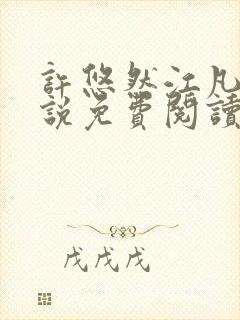 許悠然江凡
說免費閱讀
戊戌戊